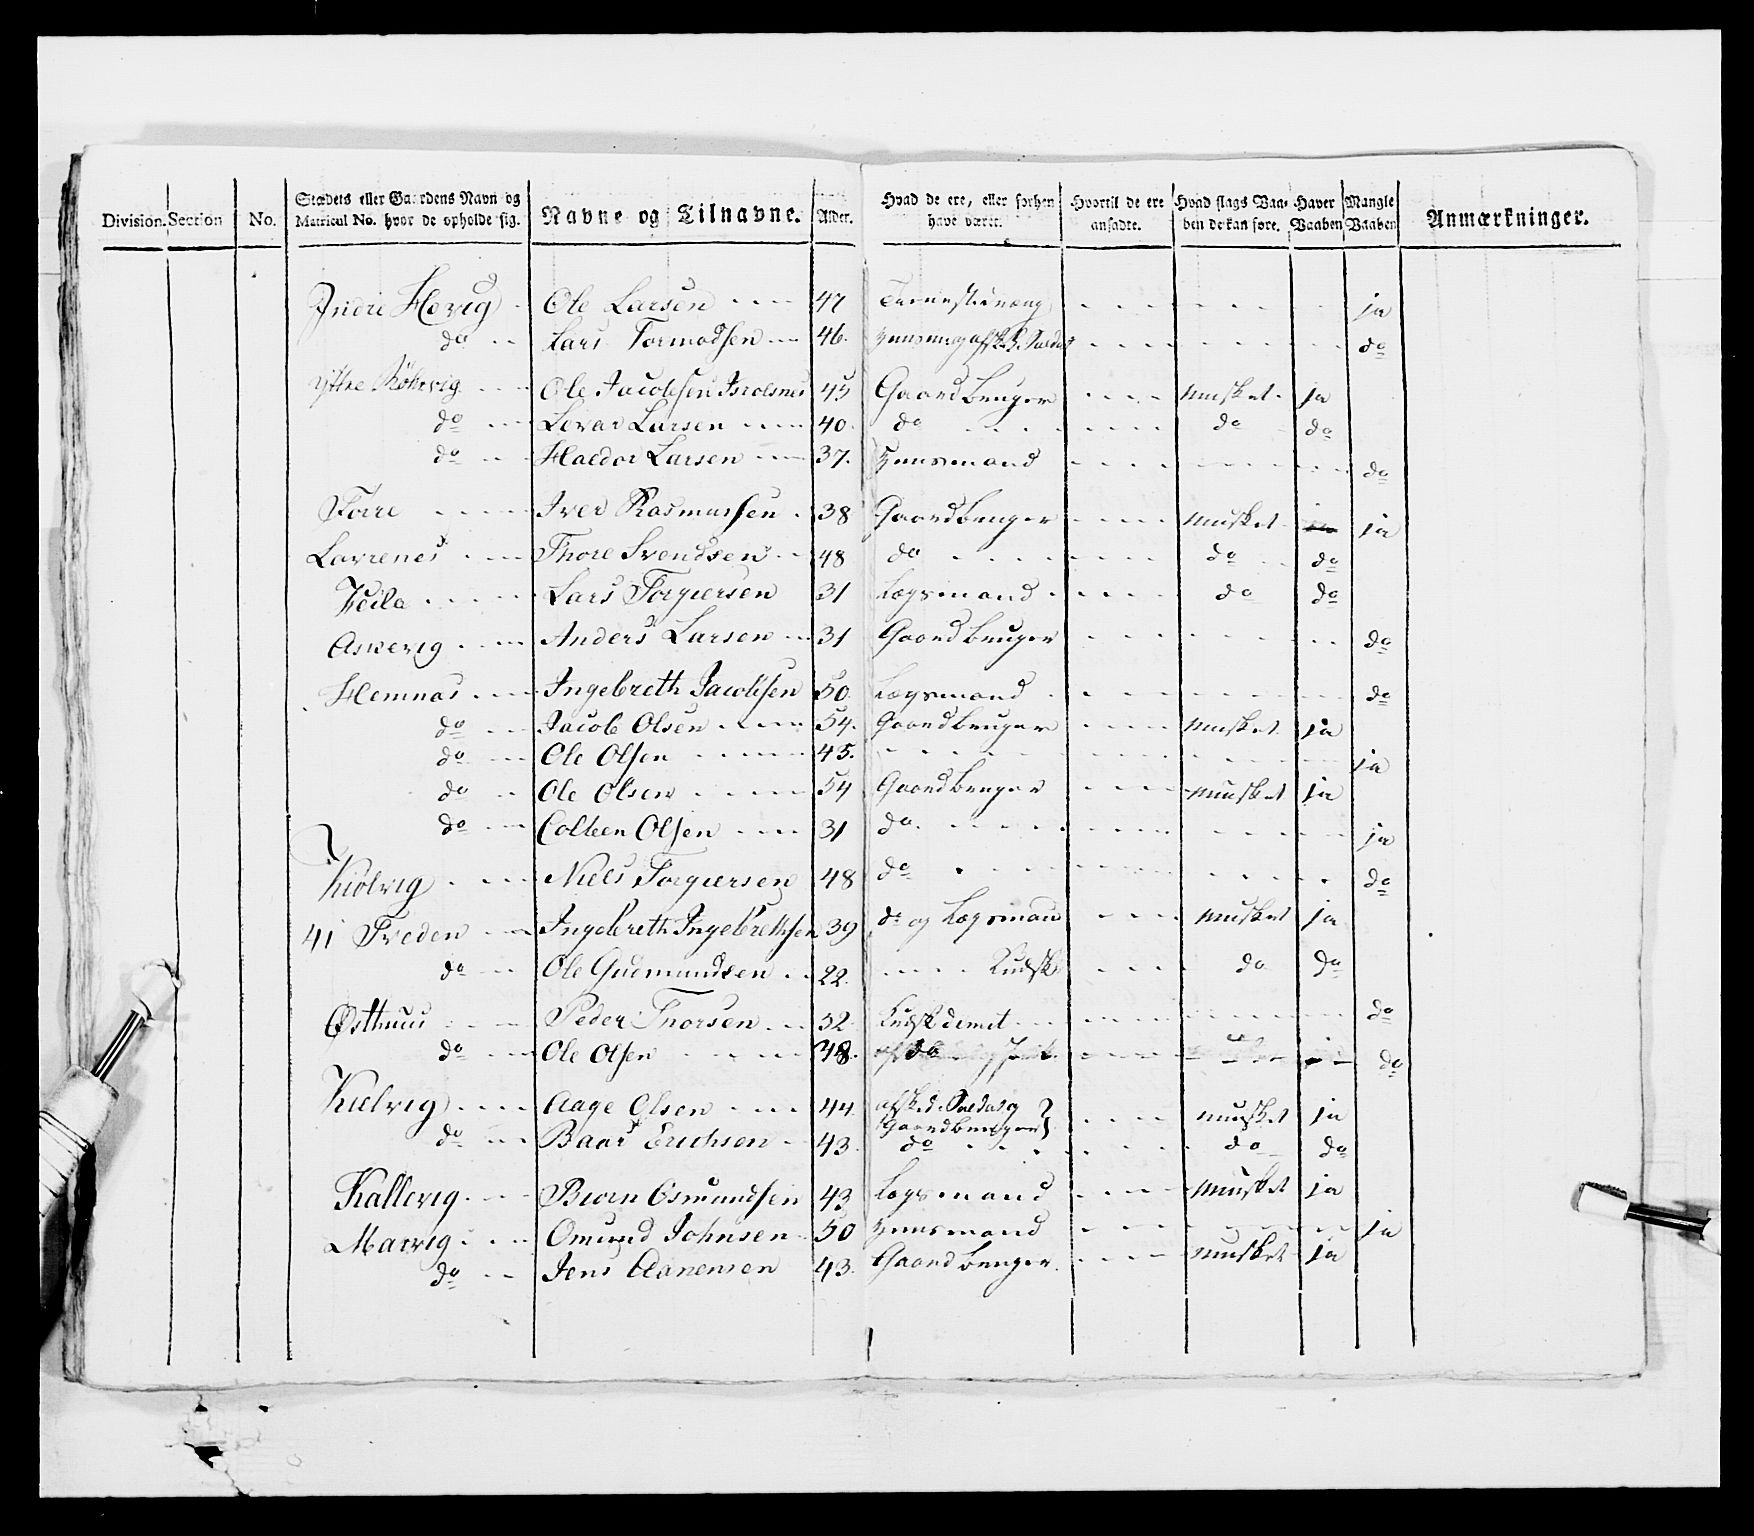 Division. Section No. Stædets eller Gaardens Navn og Matricul No. hvor de opholde sig. Navne og Tilnavne. Alder. Hvad de ere, eller forhen have været. Hvortil de ere ansadte. Hvad slags Vaaben de kan føre. Haver Vaaben Mangle Vaaben Anmærkninger.
Indre Hevig Ole Larsen 47 ja
do Lars Tormodsen 46. Huusmand afsked. Soldat do
Ole Jacobsen 45 Gaardbruger musket ja
do Larsen 40. do do do
do Haldor Larsen 37. Huusmand do
Iver Rasmussen 38 Gaardbruger musket ja
Lavrenes Thore Svendsen 48 do do do
Lars Torgiersen 31 Lægsmand do do
Anders Larsen 31 Gaardbruger do
Hemnas Ingebreth Jacobsen 50. Lægsmand do
do Jacob Olsen 54. Gaardbruger musket ja
do Ole Olsen 45. ja
do Ole Olsen 54 Gaardbruger musket ja
do Colbeen Olsen 31 do ja
Kiølvig Niels Torgiersen 48 do do
41 Treden Ingebreth Ingebrethsen 39 do og Lægsmand musket ja
do Ole Gudmundsen 22. do do
Østhuus Peder Thorsen 32 do
do Ole Olsen 38. do do
Kielvig Aage Olsen 44 afsked. Soldat og Gaardbruger musket ja
do Baar Erichsen 43. do do do
Kallevig Biørn Osmundsen 43 Lægsmand musket ja
Marvig Omund Johnsen 50 Huusmand ja
do Jens Aanensen 43. Gaardbruger musket ja